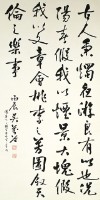 古人秉燭夜遊良有以也況
陽春假我以煙景大塊假
我以文章會桃李之芳園敘天
倫之樂事